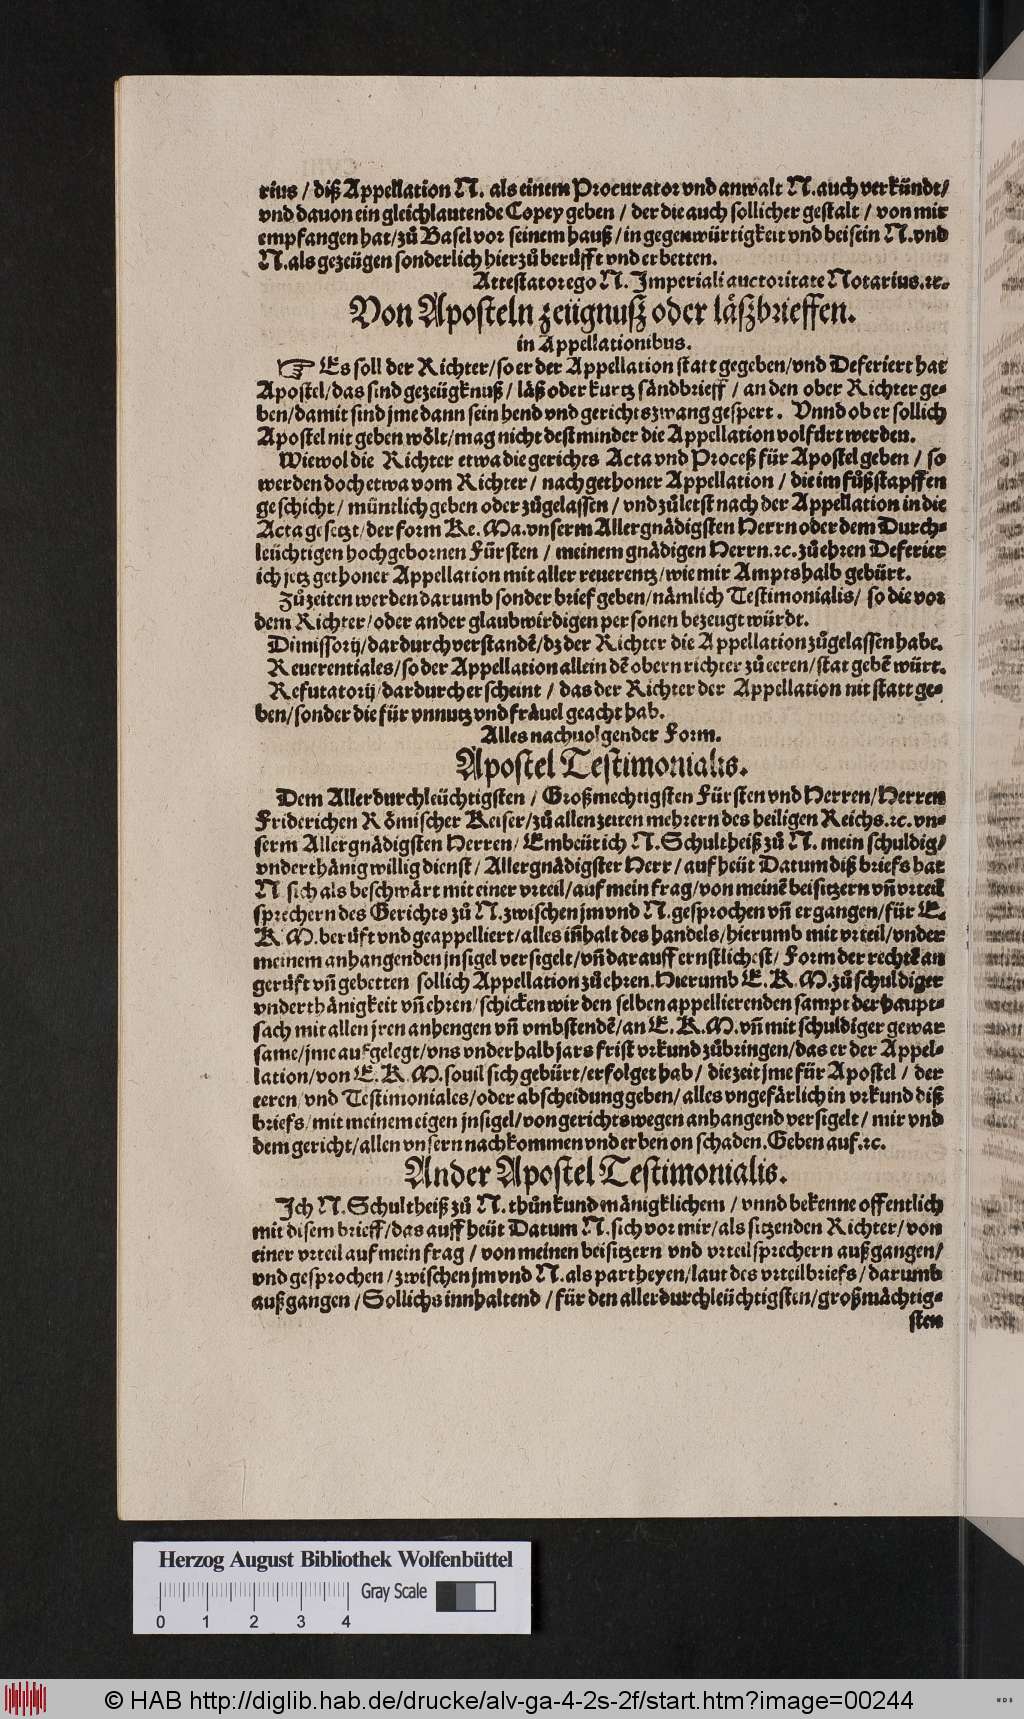 rius / diß Appellation N. als einem Procurator vnd anwalt N. auch verkündt/
vnd dauon ein gleichlautende Copey geben / der die auch sollicher gestalt / von mir
empfangen hat/zů Basel vor seinem hauß / in gegenwürtigkeit vnd bei sein N. vnd
N. als gezeügen sonderlich hierzů berůfft vnd erbetten.
Attestator ego N. Imperiali auctoritate Notarius.ꝛc.
Von Aposteln zeügnusz oder läszbrieffen.
in Appellationibus.
☞ Es soll der Richter/so er der Appellation statt gegeben/vnd Deferiert hat
Apostel/das sind gezeügknuß / läß oder kurtz sändbrieff / an den ober Richter ge-
ben/damit sind jme dann sein hend vnd gerichtszwang gespert. Vnnd ob er sollich
Apostel nit geben wölt/mag nicht dest minder die Appellation volfürt werden.
Wiewol die Richter etwa die gerichts Acta vnd Proceß für Apostel geben / so
werden doch etwa vom Richter / nach gethoner Appellation / die im fůßstapffen
geschicht / müntlich geben oder zůgelassen / vnd zůletst nach der Appellation in die
Acta gesetzt/der form Ke. Ma. vnserm Allergnädigsten Herrn oder dem Durch-
leüchtigen hochgebornen Fürsten / meinem gnädigen Herrn.ꝛc. zů ehren Deferier
ich jetz gethoner Appellation mit aller reuerentz/wie mir Amptshalb gebürt.
Zůzeiten werden darumb sonder brief geben/nämlich Testimonialis/ so die vor
dem Richter/oder ander glaubwirdigen personen bezeugt würdt.
Dimissorij/dardurch verstandē/dz der Richter die Appellation zůgelassen habe.
Reuerentiales/so der Appellation allein dē obern richter zů eeren/stat gebē würt.
Refutatorij/dardurch erscheint / das der Richter der Appellation nit statt ge-
ben/sonder die für vnnutz vnd fräuel geacht hab.
Alles nachuolgender Form.
Apostel Testimonialis.
Dem Allerdurchleüchtigsten / Großmechtigsten Fürsten vnd Herren/Herren
Friderichen Römischer Keiser/zů allen zeiten mehrern des heiligen Reichs.ꝛc. vn-
serm Allergnädigsten Herren/ Embeüt ich N. Schultheiß zů N. mein schuldig/
vnderthänig willig dienst / Allergnädigster Herr / auf heüt Datum diß briefs hat
N sich als beschwärt mit einer vrteil/auf mein frag/von meinē beisitzern vn̄ vrteil
sprechern des Gerichts zů N. zwischen jm vnd N. gesprochen vn̄ ergangen/für E.
K. M. berůft vnd geappelliert/alles in̄halt des handels/hierumb mit vrteil/vnder
meinem anhangenden jnsigel versigelt/vn̄ darauff ernstlichest/ Form der rechtē an
gerůft vn̄ gebetten sollich Appellation zů ehren. Hierumb E. K. M. zů schuldiger
vnderthänigkeit vn̄ ehren/schicken wir den selben appellierenden sampt der haupt-
sach mit allen jren anhengen vn̄ vmbstendē/an E. K. M. vn̄ mit schuldiger gewar
same/jme aufgelegt/vns vnder halb jars frist vrkund zůbringen/das er der Appel-
lation/von E. K. M. souil sich gebürt/erfolget hab / die zeit jme für Apostel / der
eeren/vnd Testimoniales/oder abscheidung geben/alles vngefärlich in vrkund diß
briefs/mit meinem eigen jnsigel/von gerichts wegen anhangend versigelt / mir vnd
dem gericht/allen vnsern nachkommen vnd erben on schaden. Geben auf.ꝛc.
Ander Apostel Testimonialis.
Ich N. Schultheiß zů N. thůn kund mänigklichem / vnnd bekenne offentlich
mit disem brieff/das auff heüt Datum N. sich vor mir/als sitzenden Richter/von
einer vrteil auf mein frag / von meinen beisitzern vnd vrteilsprechern außgangen/
vnd gesprochen / zwischen jm vnd N. als partheyen/laut des vrteilbriefs/darumb
außgangen / Sollichs innhaltend / für den allerdurchleüchtigsten/großmächtig-
sten
Herzog August Bibliothek Wolfenbüttel
Gray Scale
0 1 2 3 4
© HAB http://diglib.hab.de/drucke/alv-ga-4-2s-2f/start.htm?image=00244